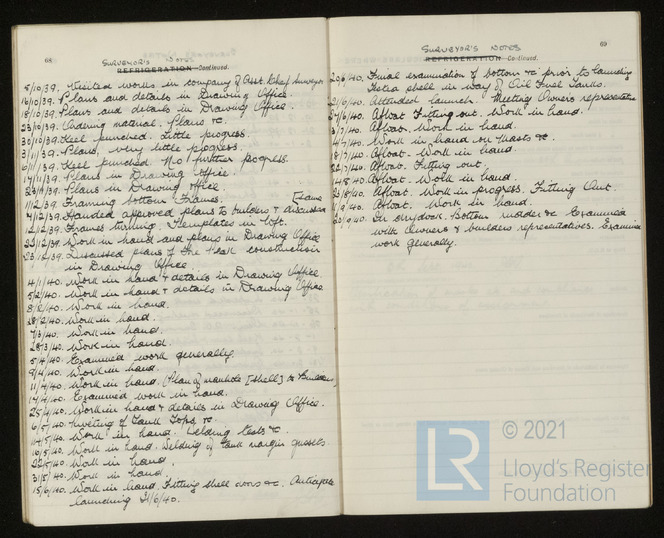 68
SURVEYOR'S NOTES
REFRIGERATION—Continued.
5/10/39. Visited works in company of Asst. Chief Surveyor
16/10/39. Plans and details in Drawing Office.
18/10/39. Plans and details in Drawing Office.
23/10/39. Ordering material. Plans &c.
30/10/39. Keel punched. Little progress.
3/11/39. Plans, very little progress.
6/11/39. Keel punched No further progress.
17/11/39. Plans in Drawing Office.
23/11/39. Plans in Drawing Office
1/12/39. Framing bottom Frames. [same
4/12/39. Handed approved plans to builders & discussed
12/12/39. Frames turning & templates in loft.
22/12/39. Work in hand and plans in Drawing Office
28/12/39. Discussed plans of the Peak construction
in Drawing Office
4/1/40. Work in hand & details in Drawing Office.
5/2/40. Work in hand & details in Drawing Office
8/2/40. Work in hand.
28/2/40. Work in hand.
7/3/40. Work in hand.
28/3/40. Work in hand.
5/4/40. Examined work generally.
9/4/40. Work in hand.
11/4/40. Work in hand. (Plan of manhole [shell] to Builders)
17/4/40. Examined work in hand.
25/4/40. Work in hand & details in Drawing Office.
6/5/40. Riveting of Tank Tops, &c.
14/5/40. Work in hand. Welding tests &c.
16/5/40. Work in hand. Welding of tank margin gussets.
22/5/40. Work in hand.
31/5/40. Work in hand.
15/6/40. Work in hand. Fitting shell doors &c. Anticipate
launching 21/6/40.
69
SURVEYOR'S NOTES
REFRIGERATION—Continued.
20/6/40. Final examination of bottom &c prior to launching
Extra shell in way of Oil Fuel Tanks.
21/6/40. Attended launch. Meeting Owners representative
27/6/40. Afloat Fitting out. Work in hand.
3/7/40. Afloat. Work in hand.
4/7/40. Work in hand on masts &c.
18/7/40. Afloat. Work in hand.
22/7/40. Afloat. Fitting out.
14/8/40. Afloat. Work in hand.
23/8/40. Afloat. Work in progress. Fitting Out.
11/9/40. Afloat. Work in hand.
20/9/40. In drydock. Bottom rudder &c Examined
with Owners & builders representatives. Examined
work generally.
LR
© 2021
Lloyd's Register
Foundation